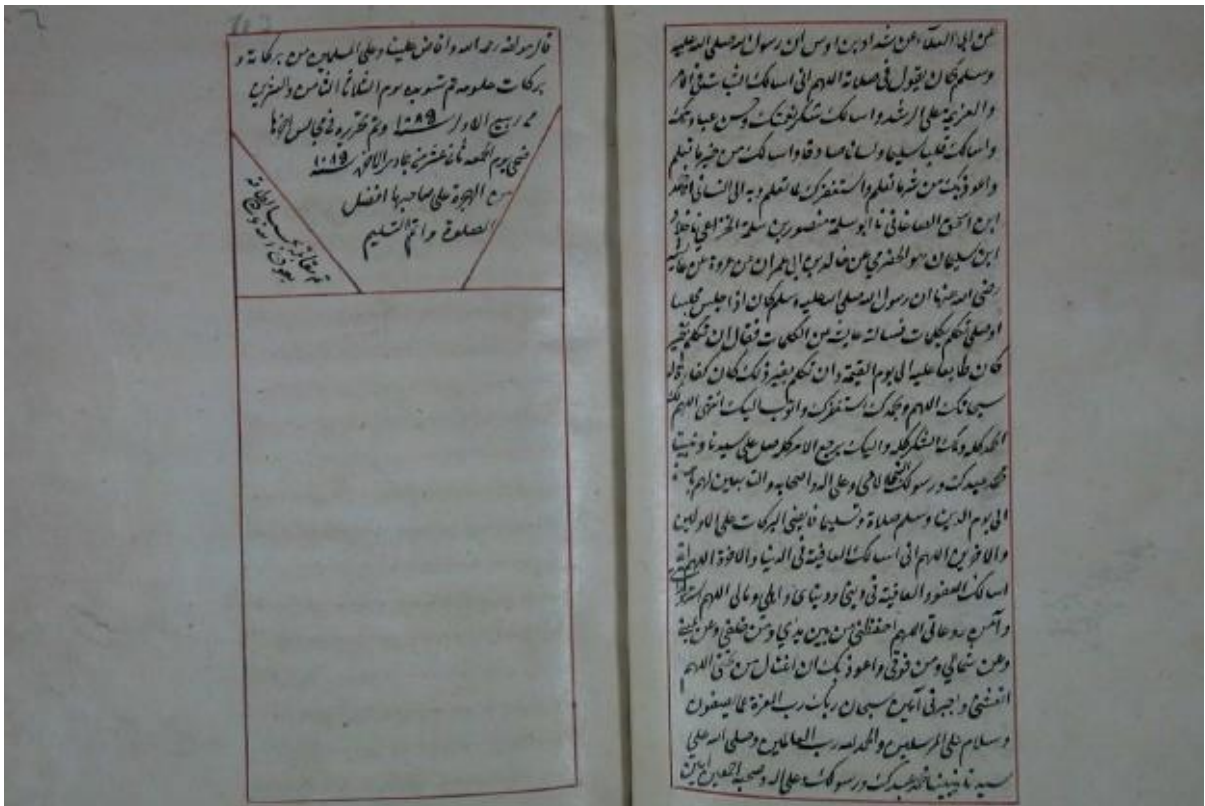 عن ابي العلاء عن شداد بن اوس ان رسول الله صلى الله عليه
وسلم كان يقول في صلاته اللهم اني اسالك الثبات في الامر
والعزيمة على الرشد واسالك شكر نعمتك وحسن عبادتك
واسالك قلبا سليما ولسانا صادقا واسالك من خير ما تعلم
واعوذ بك من شر ما تعلم واستغفرك لما تعلم وبه الى النسائي
ابن اسحق الصاغاني نا ابو سلمة منصور بن سلمة الخزاعي نا خلاد
ابن سليمان هو الحضرمي عن خالد بن ابي عمران عن عروة عن عائشة
رضى الله عنها ان رسول الله صلى الله عليه وسلم كان اذا جلس مجلسا
او صلى تكلم بكلمات فسالته عايشة عن الكلمات فقال ان تكلم بخير
كان طابعا عليه الى يوم القيمة وان تكلم بغير ذلك كان كفارة له
سبحانك اللهم وبحمدك استغفرك واتوب اليك انتهى اللهم لك
الحمد كله ولك الشكر كله واليك يرجع الامر كله صل على سيدنا ونبينا
محمد عبدك ورسولك النبي الامي وعلى اله واصحابه والتابعين لهم باحسان
الى يوم الدين وسلم صلاة وتسليما فايضي البركات على الاولين
والاخرين اللهم اني اسالك العافية في الدنيا والاخرة اللهم اني
اسالك العفو والعافية في ديني ودنياي واهلي ومالي اللهم استر
وآمن روعاتي اللهم احفظني من بين يدي ومن خلفي وعن يميني
وعن شمالي ومن فوقي واعوذ بك ان اغتال من تحتي اللهم
انعشني واجبرني آمين سبحان ربك رب العزة عما يصفون
وسلام على المرسلين والحمد لله رب العالمين وصلى الله على
سيدنا ونبينا محمد عبدك ورسولك وعلى اله وصحبه اجمعين آمين
قال مولفه رحمه الله وافاض علينا وعلى المسلمين من بركاته و
بركات علومه تم تسويده يوم الثلاثا الثامن والعشرين
من ربيع الاول سنة ١٠٨٩ وتم تحريره في مجالس اخرها
ضحى يوم الجمعة ثاني عشرين جمادى الاخر سنة ١٠٨٩
من الهجرة على صاحبها افضل
الصلوة واتم التسليم